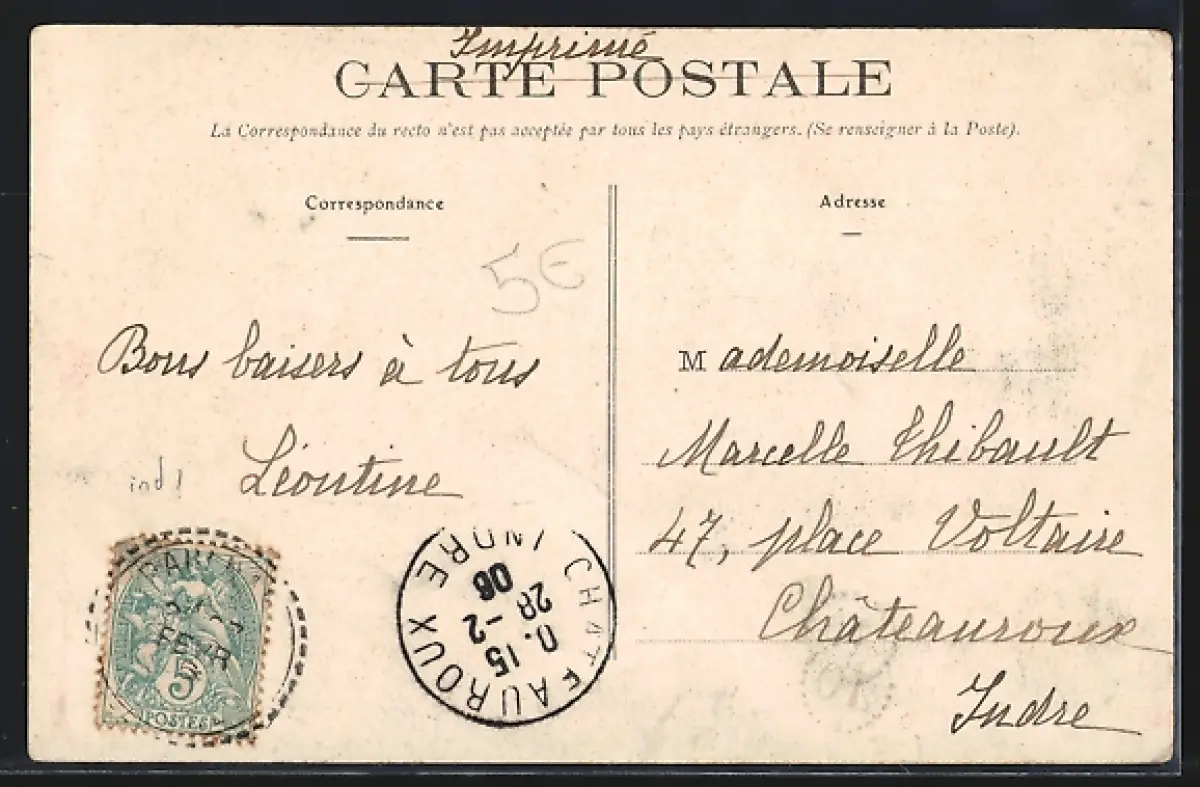 Imprimé
CARTE POSTALE
La Correspondance du recto n'est pas acceptée par tous les pays étrangers. (Se renseigner à la Poste).
Correspondance
5€
Bons baisers à tous
Léontine
ind!
5
POSTES
CHATEAUROUX
INDRE
0.15
28-2
06
Adresse
Mademoiselle
Marcelle Thibault
47, place Voltaire
Châteauroux
Indre